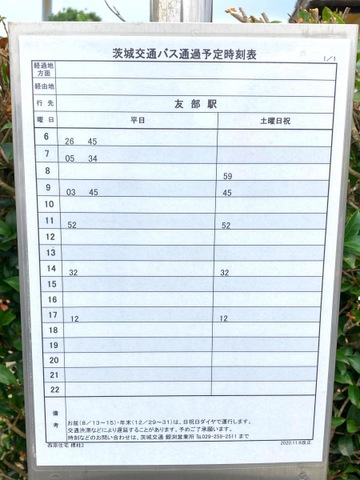 茨城交通バス通過予定時刻表
1/1
経過地
方面
経由地
行先 友部駅
曜日 平日 土曜日祝
6 26 45
7 05 34
8 59
9 03 45 45
10
11 52 52
12
13
14 32 32
15
16
17 12 12
18
19
20
21
22
備考
お盆(8/13~15)・年末(12/29~31)は、日祝日ダイヤで運行します。
交通渋滞などにより遅延することがあります。予めご了承願います。
時刻などのお問い合わせは、茨城交通
営業所 ℡029-250-2511まで
2020.11.6改正